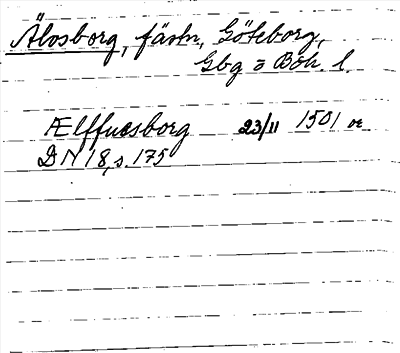 Älvsborg, fästn, Göteborg,
Gbg o Boh. l.
Ælffuesborg 23/11 1501 or
DN 18, s. 175